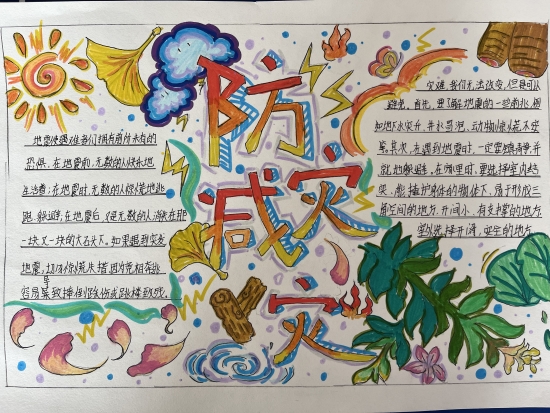 防
减灾
灾
地震使整难我们拥有前所未有的
恐惧,在地震前,无数的人快乐地
生活着;在地震时,无数的人惊慌地逃
跑、躲避,在地震后,又是无数的人
一块又一块的大石头下。如果遇到突发
地震,切勿惊慌
容易导致摔倒跌伤或跳楼致死
灾难,我们无法改变,但是可以
避免。首先,要了解地震的一些前兆,例
如地下水突升,井水冒泡,动物惊慌不安
等。其次,在遇到地震时,一定要镇静,并
就地躲避。在哪里时,要选择室内结
实、能掩护身体的物体下、易于形成三
角空间的地方,开间小、有支撑的地方
室外选择开阔、安全的地方